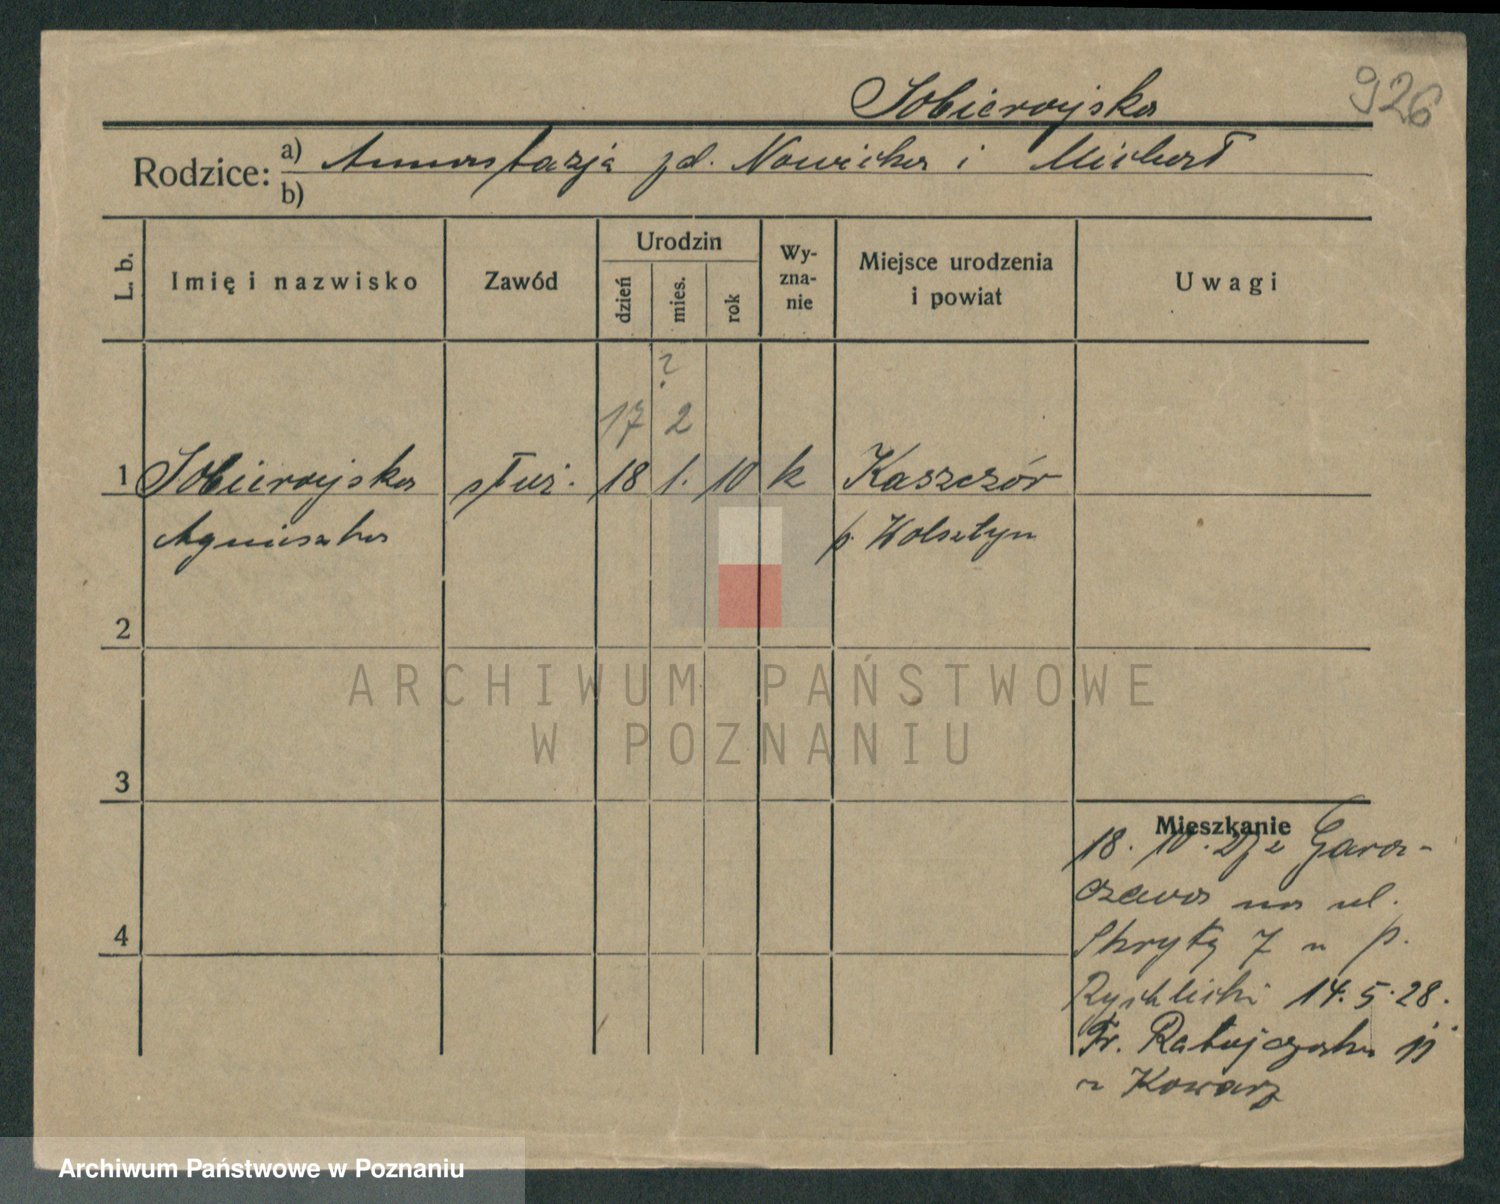 926
Sobierajska
Rodzice: a) Anastazja zd. Nowicka i Michał
b)
L. b.
Imię i nazwisko
Zawód
Urodzin
dzień
mies.
rok
Wy-
zna-
nie
Miejsce urodzenia
i powiat
Uwagi
?
17 2
1 Sobierajska służ. 18 1. 10 k Kaszczór
Agnieszka p. Wolsztyn
2
ARCHIWUM PAŃSTWOWE
W POZNANIU
3
Mieszkanie
18. 10. 27 z Gara-
czewa na ul.
Skrytą 7 u p.
Rychlicki 14.5.28.
Fr. Ratajczaka 11
u Kowarz
4
Archiwum Państwowe w Poznaniu